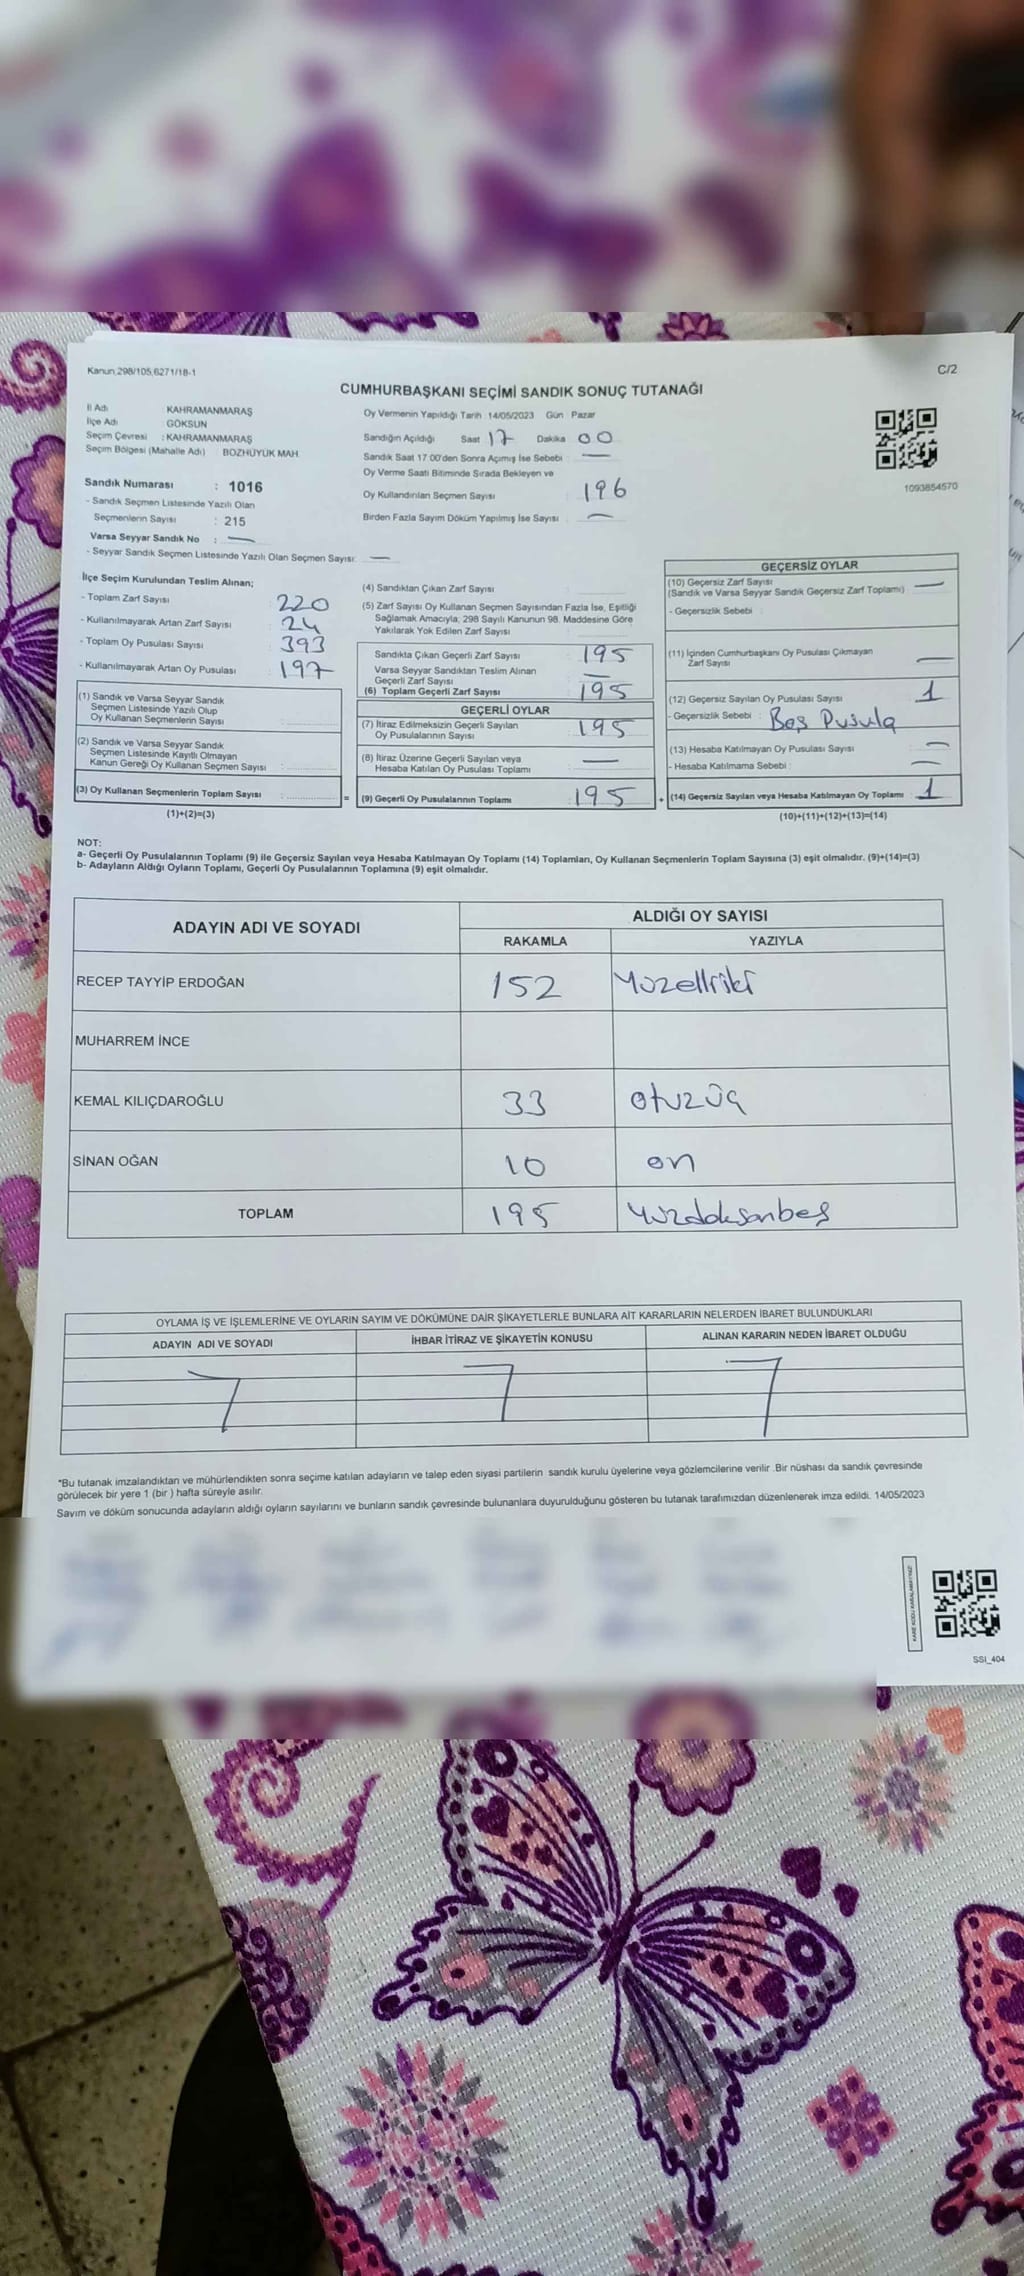 Kanun,298/105,6271/18-1
C/2
CUMHURBAŞKANI SEÇİMİ SANDIK SONUÇ TUTANAĞI
İl Adı KAHRAMANMARAŞ
İlçe Adı GÖKSUN
Seçim Çevresi : KAHRAMANMARAŞ
Seçim Bölgesi (Mahalle Adı) BOZHÜYÜK MAH.
Sandık Numarası : 1016
- Sandık Seçmen Listesinde Yazılı Olan
Seçmenlerin Sayısı : 215
Varsa Seyyar Sandık No : —
- Seyyar Sandık Seçmen Listesinde Yazılı Olan Seçmen Sayısı: —
Oy Vermenin Yapıldığı Tarih 14/05/2023 Gün Pazar
Sandığın Açıldığı Saat 17 Dakika 00
Sandık Saat 17:00'den Sonra Açımış İse Sebebi : —
Oy Verme Saati Bitiminde Sırada Bekleyen ve
Oy Kullandırılan Seçmen Sayısı : 196
Birden Fazla Sayım Döküm Yapılmış İse Sayısı : —
1093854570
İlçe Seçim Kurulundan Teslim Alınan;
- Toplam Zarf Sayısı : 220
- Kullanılmayarak Artan Zarf Sayısı : 24
- Toplam Oy Pusulası Sayısı : 393
- Kullanılmayarak Artan Oy Pusulası : 197
(1) Sandık ve Varsa Seyyar Sandık
Seçmen Listesinde Yazılı Olup
Oy Kullanan Seçmenlerin Sayısı :
(2) Sandık ve Varsa Seyyar Sandık
Seçmen Listesinde Kayıtlı Olmayan
Kanun Gereği Oy Kullanan Seçmen Sayısı :
(3) Oy Kullanan Seçmenlerin Toplam Sayısı :
=
(1)+(2)=(3)
(4) Sandıktan Çıkan Zarf Sayısı :
(5) Zarf Sayısı Oy Kullanan Seçmen Sayısından Fazla İse, Eşitliği
Sağlamak Amacıyla; 298 Sayılı Kanunun 98. Maddesine Göre
Yakılarak Yok Edilen Zarf Sayısı :
Sandıkta Çıkan Geçerli Zarf Sayısı : 195
Varsa Seyyar Sandıktan Teslim Alınan
Geçerli Zarf Sayısı : —
(6) Toplam Geçerli Zarf Sayısı : 195
GEÇERLİ OYLAR
(7) İtiraz Edilmeksizin Geçerli Sayılan
Oy Pusulalarının Sayısı : 195
(8) İtiraz Üzerine Geçerli Sayılan veya
Hesaba Katılan Oy Pusulası Toplamı : —
(9) Geçerli Oy Pusulalarının Toplamı : 195
+
GEÇERSİZ OYLAR
(10) Geçersiz Zarf Sayısı : —
(Sandık ve Varsa Seyyar Sandık Geçersiz Zarf Toplamı)
- Geçersizlik Sebebi :
(11) İçinden Cumhurbaşkanı Oy Pusulası Çıkmayan
Zarf Sayısı —
(12) Geçersiz Sayılan Oy Pusulası Sayısı : 1
- Geçersizlik Sebebi : Boş Pusula
(13) Hesaba Katılmayan Oy Pusulası Sayısı : —
- Hesaba Katılmama Sebebi : —
(14) Geçersiz Sayılan veya Hesaba Katılmayan Oy Toplamı : 1
(10)+(11)+(12)+(13)=(14)
NOT:
a- Geçerli Oy Pusulalarının Toplamı (9) ile Geçersiz Sayılan veya Hesaba Katılmayan Oy Toplamı (14) Toplamları, Oy Kullanan Seçmenlerin Toplam Sayısına (3) eşit olmalıdır. (9)+(14)=(3)
b- Adayların Aldığı Oyların Toplamı, Geçerli Oy Pusulalarının Toplamına (9) eşit olmalıdır.
ADAYIN ADI VE SOYADI
ALDIĞI OY SAYISI
RAKAMLA YAZIYLA
RECEP TAYYİP ERDOĞAN 152 Yüzelliiki
MUHARREM İNCE
KEMAL KILIÇDAROĞLU 33 otuzüç
SİNAN OĞAN 10 on
TOPLAM 195 Yüzdoksanbeş
OYLAMA İŞ VE İŞLEMLERİNE VE OYLARIN SAYIM VE DÖKÜMÜNE DAİR ŞİKAYETLERLE BUNLARA AİT KARARLARIN NELERDEN İBARET BULUNDUKLARI
ADAYIN ADI VE SOYADI İHBAR İTİRAZ VE ŞİKAYETİN KONUSU ALINAN KARARIN NEDEN İBARET OLDUĞU
*Bu tutanak imzalandıktan ve mühürlendikten sonra seçime katılan adayların ve talep eden siyasi partilerin sandık kurulu üyelerine veya gözlemcilerine verilir .Bir nüshası da sandık çevresinde
görülecek bir yere 1 (bir ) hafta süreyle asılır.
Sayım ve döküm sonucunda adayların aldığı oyların sayılarını ve bunların sandık çevresinde bulunanlara duyurulduğunu gösteren bu tutanak tarafımızdan düzenlenerek imza edildi. 14/05/2023
KARE KODU KARALAMAYINIZ!
SSI_404